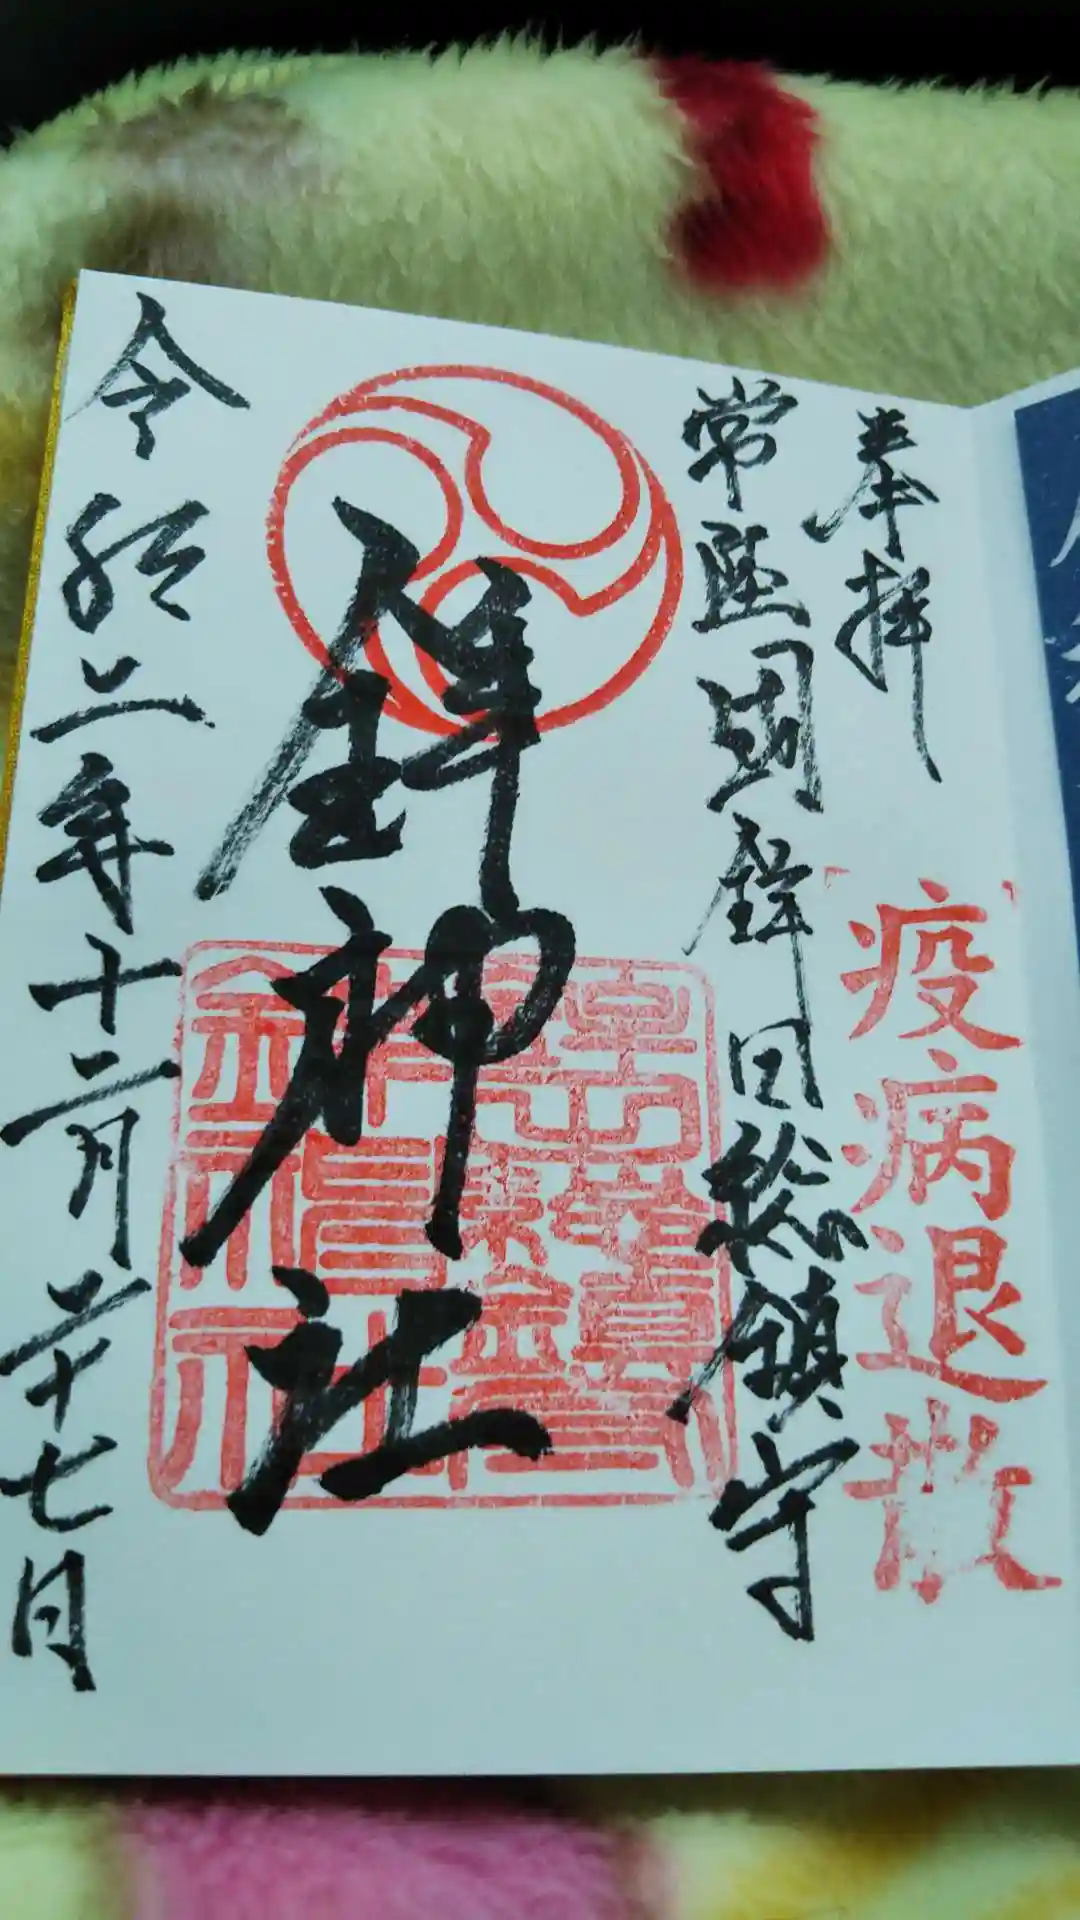 奉拝
疫病退散
常陸国鉾田総鎮守
鉾神社
令和二年十二月二十七日